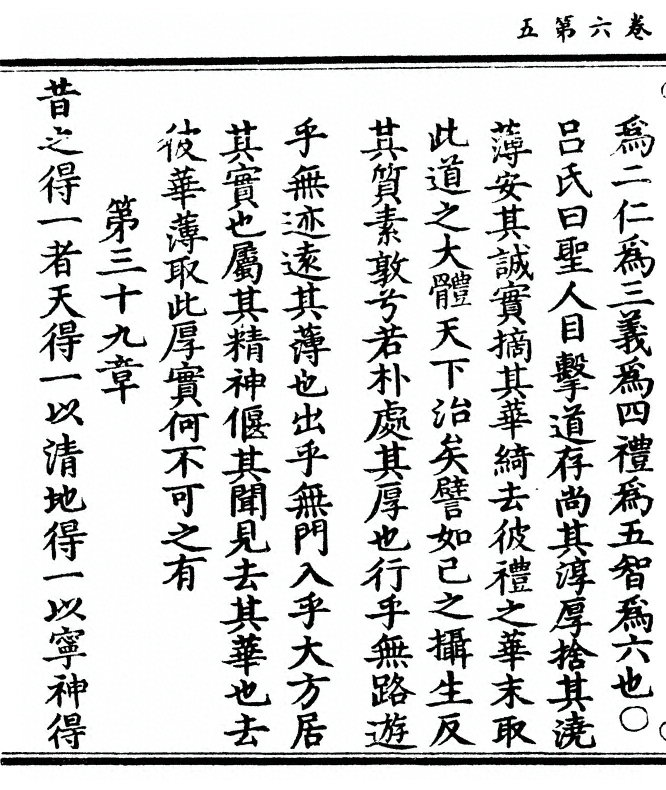 卷六第五
爲二仁爲三義爲四禮爲五智爲六也○
呂氏曰聖人目擊道存尚其淳厚捨其澆
薄安其誠實摘其華綺去彼禮之華末取
此道之大體天下治矣譬如已之攝生反
其質素敦兮若朴處其厚也行乎無路遊
乎無迹遠其薄也出乎無門入乎大方居
其實也屬其精神偃其聞見去其華也去
彼華薄取此厚實何不可之有
第三十九章
昔之得一者天得一以清地得一以寧神得